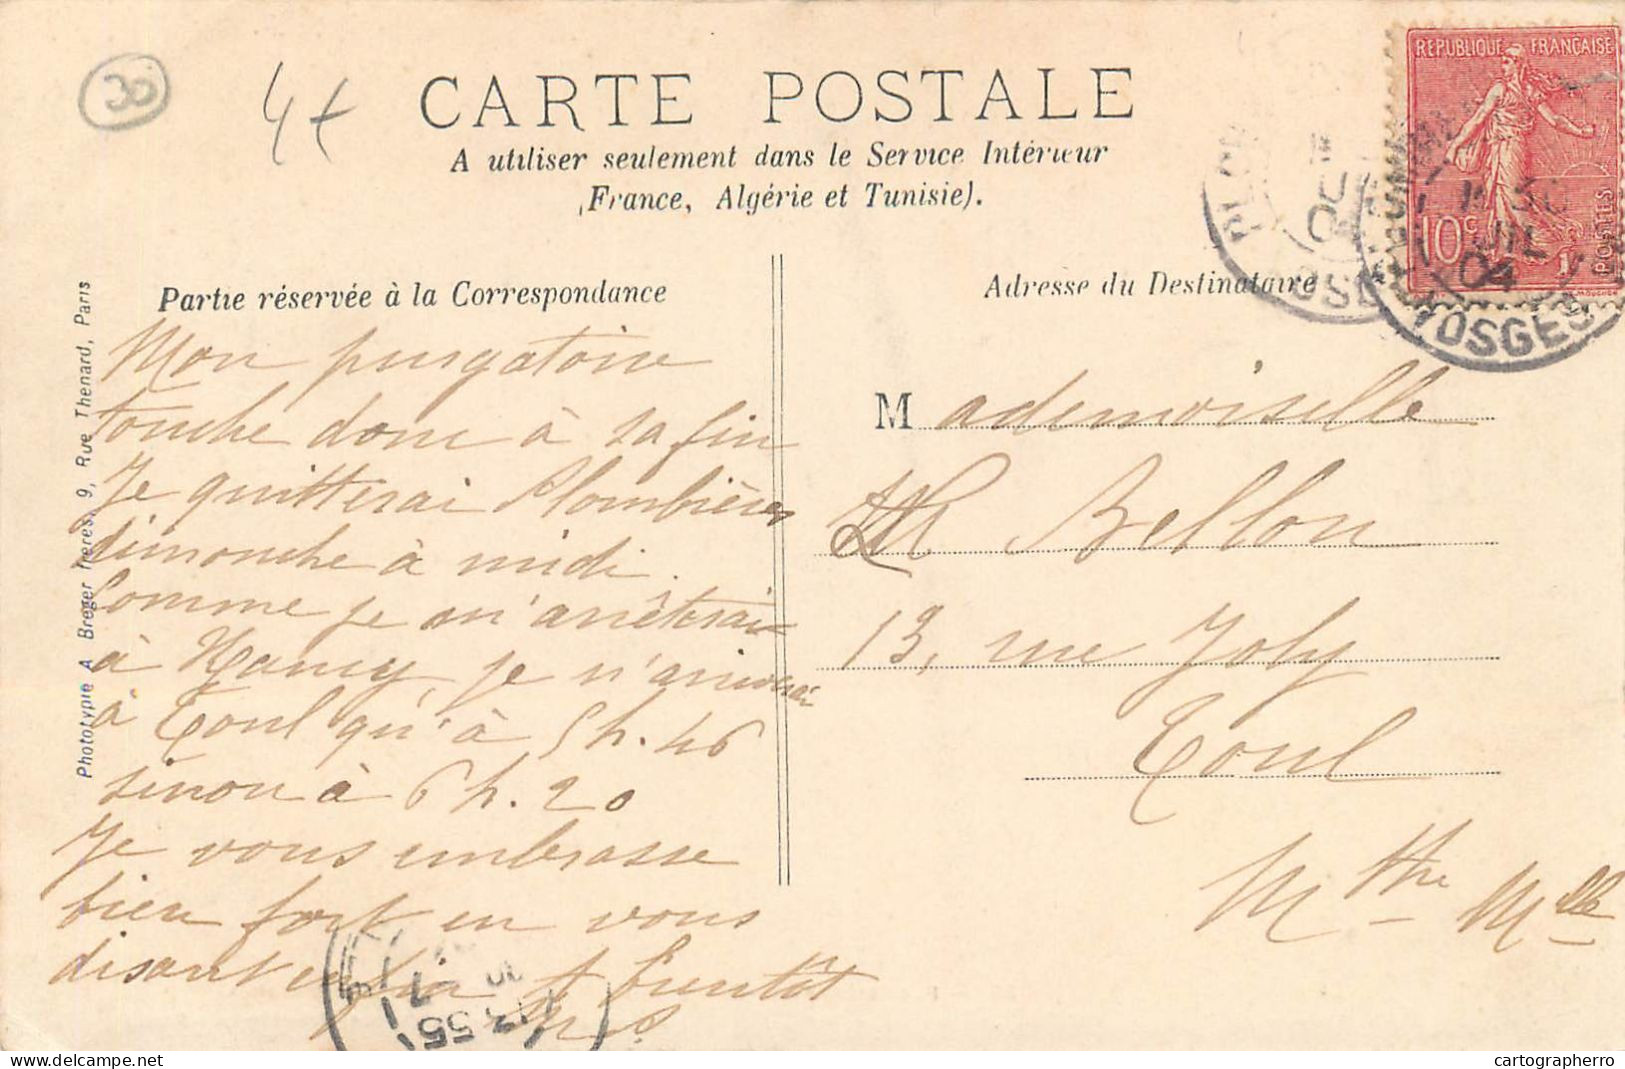 30
4€
CARTE POSTALE
A utiliser seulement dans le Service Intérieur
(France, Algérie et Tunisie).
REPUBLIQUE FRANÇAISE
10c
POSTES
VOSGES
04
Partie réservée à la Correspondance
Adresse du Destinataire
Phototypie A Breger frères, 9, Rue Thenard, Paris
Mon purgatoire
touche donc à sa fin
Je quitterai Plombières
dimanche à midi.
Comme je m'arrêterai
à Nancy, je n'arriverai
à Toul qu'à 5h.46
sinon à 6h.20
Je vous embrasse
bien fort en vous
disant enfin A bientôt
Mademoiselle
Bellon
13, rue Joly
Toul
Mthe Mlle
13 55
cartographerro